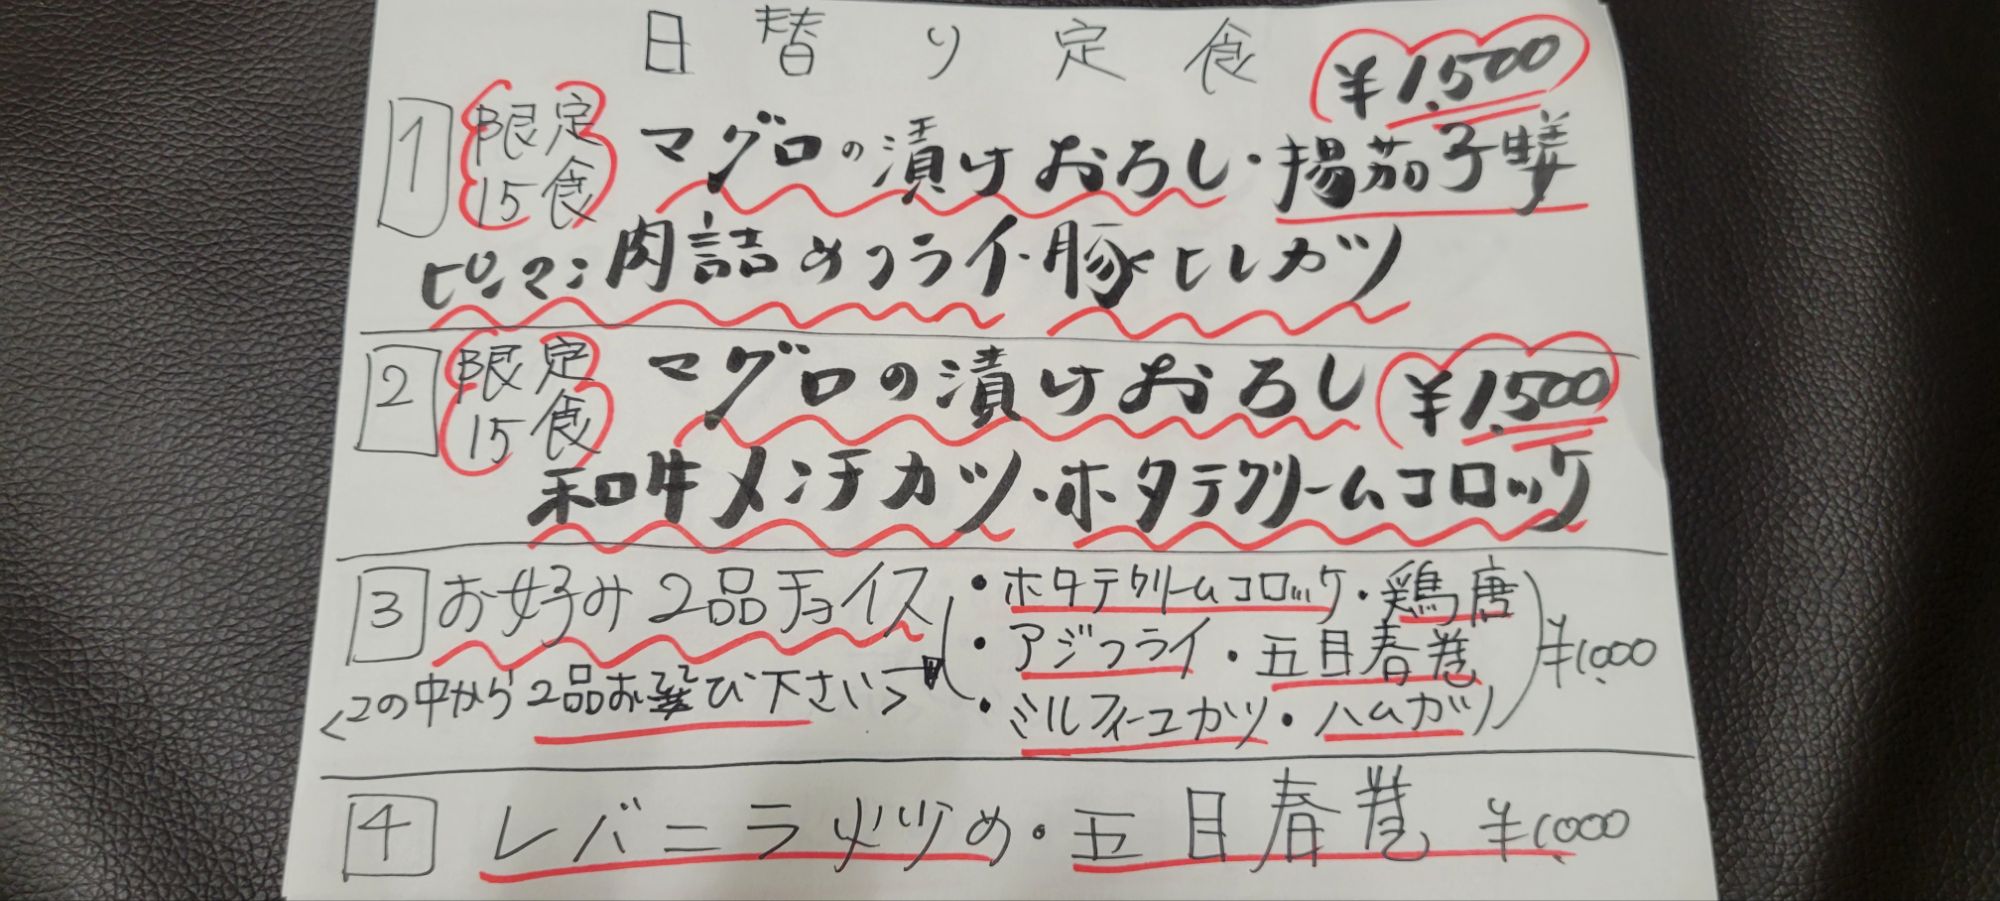 日替り定食
1 限定15食 ¥1,500
マグロの漬けおろし・揚茄子
ピーマン肉詰めフライ・豚ヒレカツ
2 限定15食 ¥1,500
マグロの漬けおろし
和牛メンチカツ・ホタテクリームコロッケ
3 お好み2品チョイス
<この中から2品お選び下さい>
・ホタテクリームコロッケ・鶏唐
・アジフライ・五目春巻
・ミルフィーユカツ・ハムカツ
¥1,000
4 レバニラ炒め・五目春巻 ¥1,000